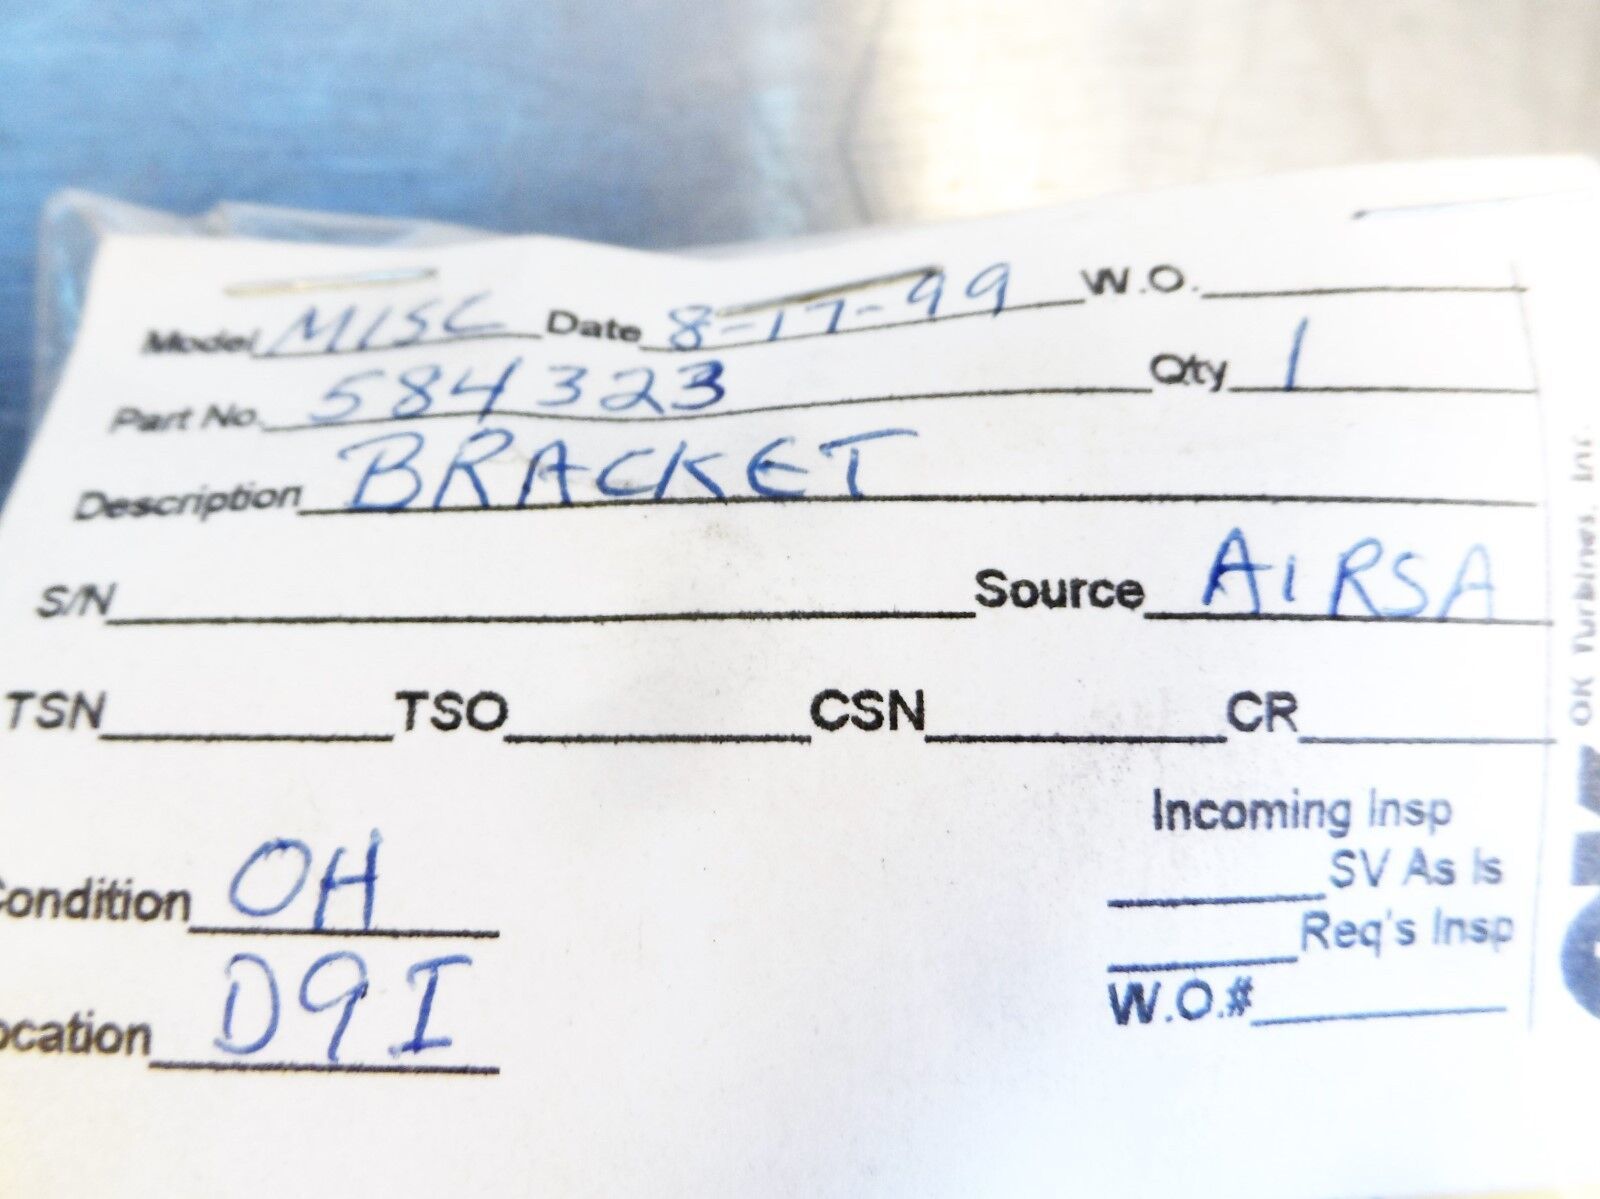 Model MISC Date 8-17-99 W.O.
Part No. 584323 Qty 1
Description BRACKET
S/N Source AIRSA
TSN TSO CSN CR
Incoming Insp
Condition OH SV As Is
Req's Insp
Location D9I W.O.#
OK Turbines, Inc.